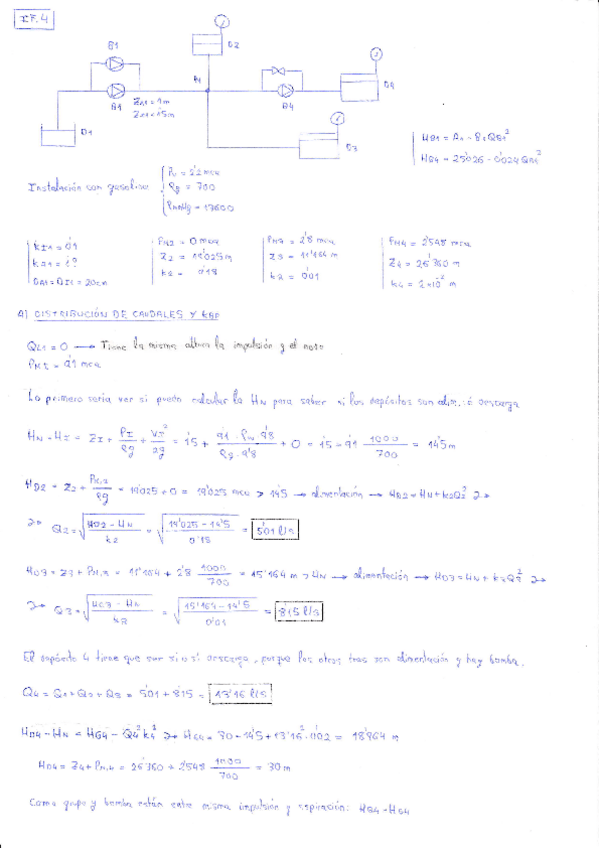 IF.4
B1
B1
ZA1 = 1m
D1
N
D2
B4
D4
D3
HB1 = A1 - B1QB1²
HG4 = 25'026 - 0'024QB1²
Instalación con gasolina
Pv = 2'2 mca
ρg = 700
ρmHg = 13600
kI1 = 0'1
kA1 = ¿?
DA1 = DI1 = 20cm
PM2 = 0 mca
Z2 = 19'025m
k2 = 0'18
PM3 = 2'8 mca
Z3 = 11'164 m
k3 = 0'01
PM4 = 2'548 mca
Z4 = 26'360 m
k4 = 2×10⁻² m
A) DISTRIBUCIÓN DE CAUDALES Y
QB1 = 0 → Tiene la misma altura la impulsión y el nodo
= 0'1 mca
Lo primero sería ver si puedo calcular la HN para saber si los depósitos son alim. ó descarga
HN = HI = ZI + PI/ρg + VI²/2g = 15 + + 0 = 15 - 0'1 1000/700 = 14'5 m
HD2 = Z2 + /ρg = 19'025 + 0 = 19'025 mcu > 14'5 → alimentación → HD2 = HN + k2Q2²
Q2 = √(HD2 - HN / k2) = √(19'025 - 14'5 / 0'18) = 5'01 l/s
HD3 = Z3 + PM,3 = 11'164 + 2'8 1000/700 = 15'164 m > HN → alimentación → HD3 = HN + k3Q3²
Q3 = √(HD3 - HN / k3) = √(15'164 - 14'5 / 0'01) = 8'15 l/s
El depósito 4 tiene que ser si o si descarga, porque los otros tres son alimentación y hay bomba.
Q4 = Q1 + Q2 + Q3 = 5'01 + 8'15 = 13'16 l/s
HD4 - HN = HG4 - Q4²k4 HG4 = 30 - 14'5 + 13'16² · 0'02 = 18'964 m
HD4 = Z4 + PM,4 = 26'360 + 2'548 1000/700 = 30m
Como grupo y bomba están entre misma impulsión y aspiración: HB4 = HG4